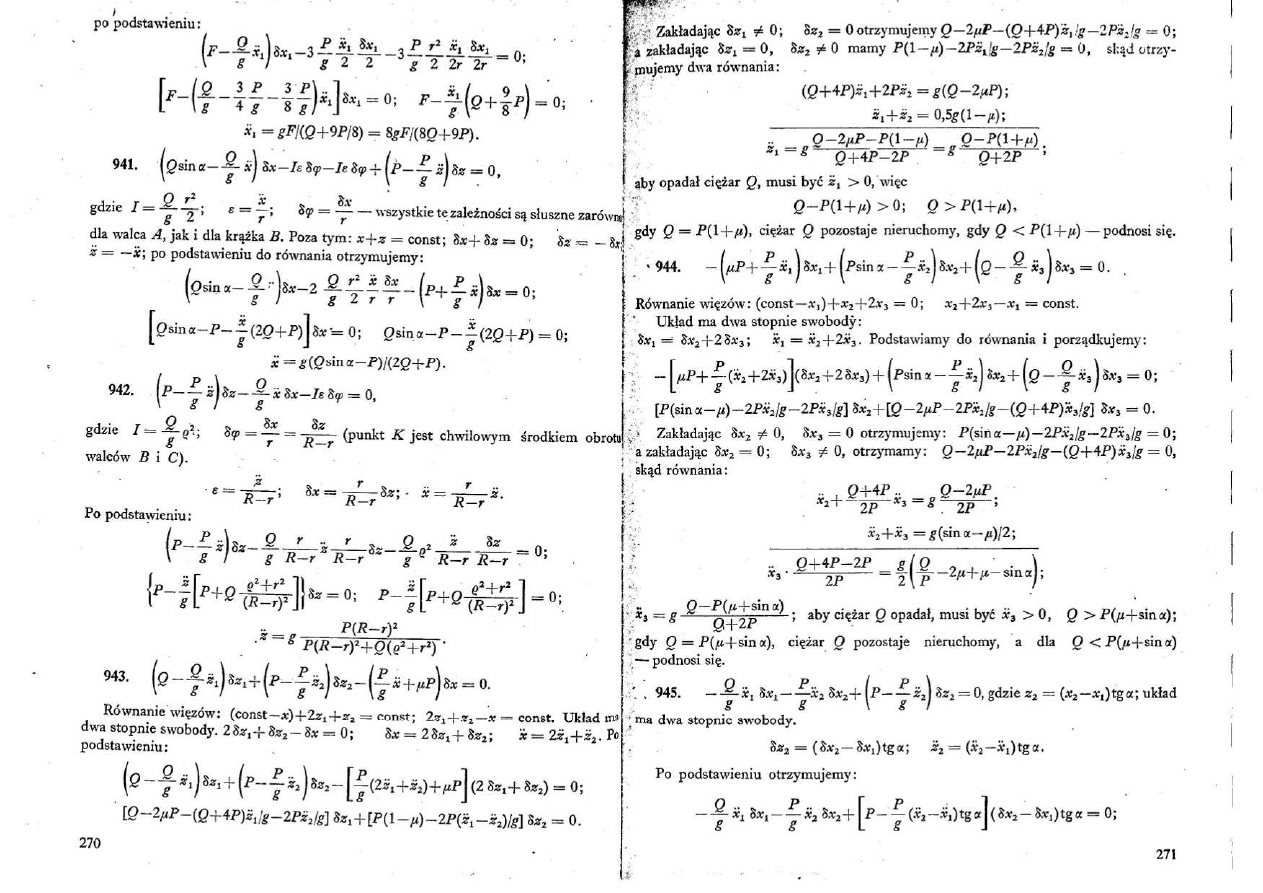 po podstawieniu:
(F−Q/g ẍ₁)δx₁−3 P/g ẍ₁/2 δx₁/2 −3 P/g r²/2 ẍ₁/2r δx₁/2r = 0;
[F−(Q/g − 3/4 P/g − 3/8 P/g)ẍ₁]δx₁ = 0; F−ẍ₁/g (Q+9/8 P) = 0;
ẍ₁ = gF/(Q+9P/8) = 8gF/(8Q+9P).
941. (Qsin α−Q/g ẍ) δx−Iε δφ−Iε δφ+(P−P/g z̈)δz = 0,
gdzie I = Q/g r²/2; ε = ẍ/r; δφ = δx/r — wszystkie te zależności są słuszne zarówn
dla walca A, jak i dla krążka B. Poza tym: x+z = const; δx+δz = 0; δz = −δx
z̈ = −ẍ; po podstawieniu do równania otrzymujemy:
(Qsin α−Q/g )δx−2 Q/g r²/2 ẍ/r δx/r −(P+P/g ẍ)δx = 0;
[Qsin α−P−ẍ/g (2Q+P)]δx = 0; Qsin α−P−ẍ/g (2Q+P) = 0;
ẍ = g(Qsin α−P)/(2Q+P).
942. (P−P/g z̈)δz−Q/g ẍ δx−Iε δφ = 0,
gdzie I = Q/g ϱ²; δφ = δx/r = δz/(R−r) (punkt K jest chwilowym środkiem obrotu
walców B i C).
ε = z̈/(R−r); δx = r/(R−r) δz; ẍ = r/(R−r) z̈.
Po podstawieniu:
(P−P/g z̈)δz−Q/g r/(R−r) z̈ r/(R−r) δz−Q/g ϱ² z̈/(R−r) δz/(R−r) = 0;
{P−z̈/g [P+Q (ϱ²+r²)/(R−r)²]}δz = 0; P−z̈/g [P+Q (ϱ²+r²)/(R−r)²] = 0;
z̈ = g P(R−r)²/(P(R−r)²+Q(ϱ²+r²)).
943. (Q−Q/g z̈₁)δz₁+(P−P/g z̈₂)δz₂−(P/g ẍ+μP)δx = 0.
Równanie więzów: (const−x)+2z₁+z₂ = const; 2z₁+z₂−x = const. Układ ma
dwa stopnie swobody. 2δz₁+δz₂−δx = 0; δx = 2δz₁+δz₂; ẍ = 2z̈₁+z̈₂. Po
podstawieniu:
(Q−Q/g z̈₁)δz₁+(P−P/g z̈₂)δz₂−[P/g (2z̈₁+z̈₂)+μP](2 δz₁+δz₂) = 0;
[Q−2μP−(Q+4P)z̈₁/g−2Pz̈₂/g] δz₁+[P(1−μ)−2P(z̈₁−z̈₂)/g] δz₂ = 0.
270
Zakładając δz₁ ≠ 0; δz₂ = 0 otrzymujemy Q−2μP−(Q+4P)z̈₁/g−2Pz̈₂/g = 0;
a zakładając δz₁ = 0, δz₂ ≠ 0 mamy P(1−μ)−2Pz̈₁/g−2Pz̈₂/g = 0, skąd otrzy-
mujemy dwa równania:
(Q+4P)z̈₁+2Pz̈₂ = g(Q−2μP);
z̈₁+z̈₂ = 0,5g(1−μ);
z̈₁ = g (Q−2μP−P(1−μ))/(Q+4P−2P) = g (Q−P(1+μ))/(Q+2P);
aby opadał ciężar Q, musi być z̈₁ > 0, więc
Q−P(1+μ) > 0; Q > P(1+μ),
gdy Q = P(1+μ), ciężar Q pozostaje nieruchomy, gdy Q < P(1+μ) — podnosi się.
944. −(μP+P/g ẍ₁)δx₁+(Psin α−P/g ẍ₂)δx₂+(Q−Q/g ẍ₃)δx₃ = 0.
Równanie więzów: (const−x₁)+x₂+2x₃ = 0; x₂+2x₃−x₁ = const.
Układ ma dwa stopnie swobody:
δx₁ = δx₂+2δx₃; ẍ₁ = ẍ₂+2ẍ₃. Podstawiamy do równania i porządkujemy:
−[μP+P/g (ẍ₂+2ẍ₃)](δx₂+2 δx₃)+(Psin α−P/g ẍ₂)δx₂+(Q−Q/g ẍ₃)δx₃ = 0;
[P(sin α−μ)−2Pẍ₂/g−2Pẍ₃/g] δx₂+[Q−2μP−2Pẍ₂/g−(Q+4P)ẍ₃/g] δx₃ = 0.
Zakładając δx₂ ≠ 0, δx₃ = 0 otrzymujemy: P(sin α−μ)−2Pẍ₂/g−2Pẍ₃/g = 0;
a zakładając δx₂ = 0; δx₃ ≠ 0, otrzymamy: Q−2μP−2Pẍ₂/g−(Q+4P)ẍ₃/g = 0,
skąd równania:
ẍ₂+(Q+4P)/2P ẍ₃ = g (Q−2μP)/2P;
ẍ₂+ẍ₃ = g(sin α−μ)/2;
ẍ₃ · (Q+4P−2P)/2P = g/2 (Q/P −2μ+μ−sin α);
ẍ₃ = g (Q−P(μ+sin α))/(Q+2P); aby ciężar Q opadał, musi być ẍ₃ > 0, Q > P(μ+sin α);
gdy Q = P(μ+sin α), ciężar Q pozostaje nieruchomy, a dla Q < P(μ+sin α)
— podnosi się.
945. −Q/g ẍ₁ δx₁−P/g ẍ₂ δx₂+(P−P/g z̈₂) δz₂ = 0, gdzie z₂ = (x₂−x₁)tg α; układ
ma dwa stopnie swobody.
δz₂ = (δx₂−δx₁)tg α; z̈₂ = (ẍ₂−ẍ₁)tg α.
Po podstawieniu otrzymujemy:
−Q/g ẍ₁ δx₁−P/g ẍ₂ δx₂+[P−P/g (ẍ₂−ẍ₁)tg α](δx₂−δx₁)tg α = 0;
271